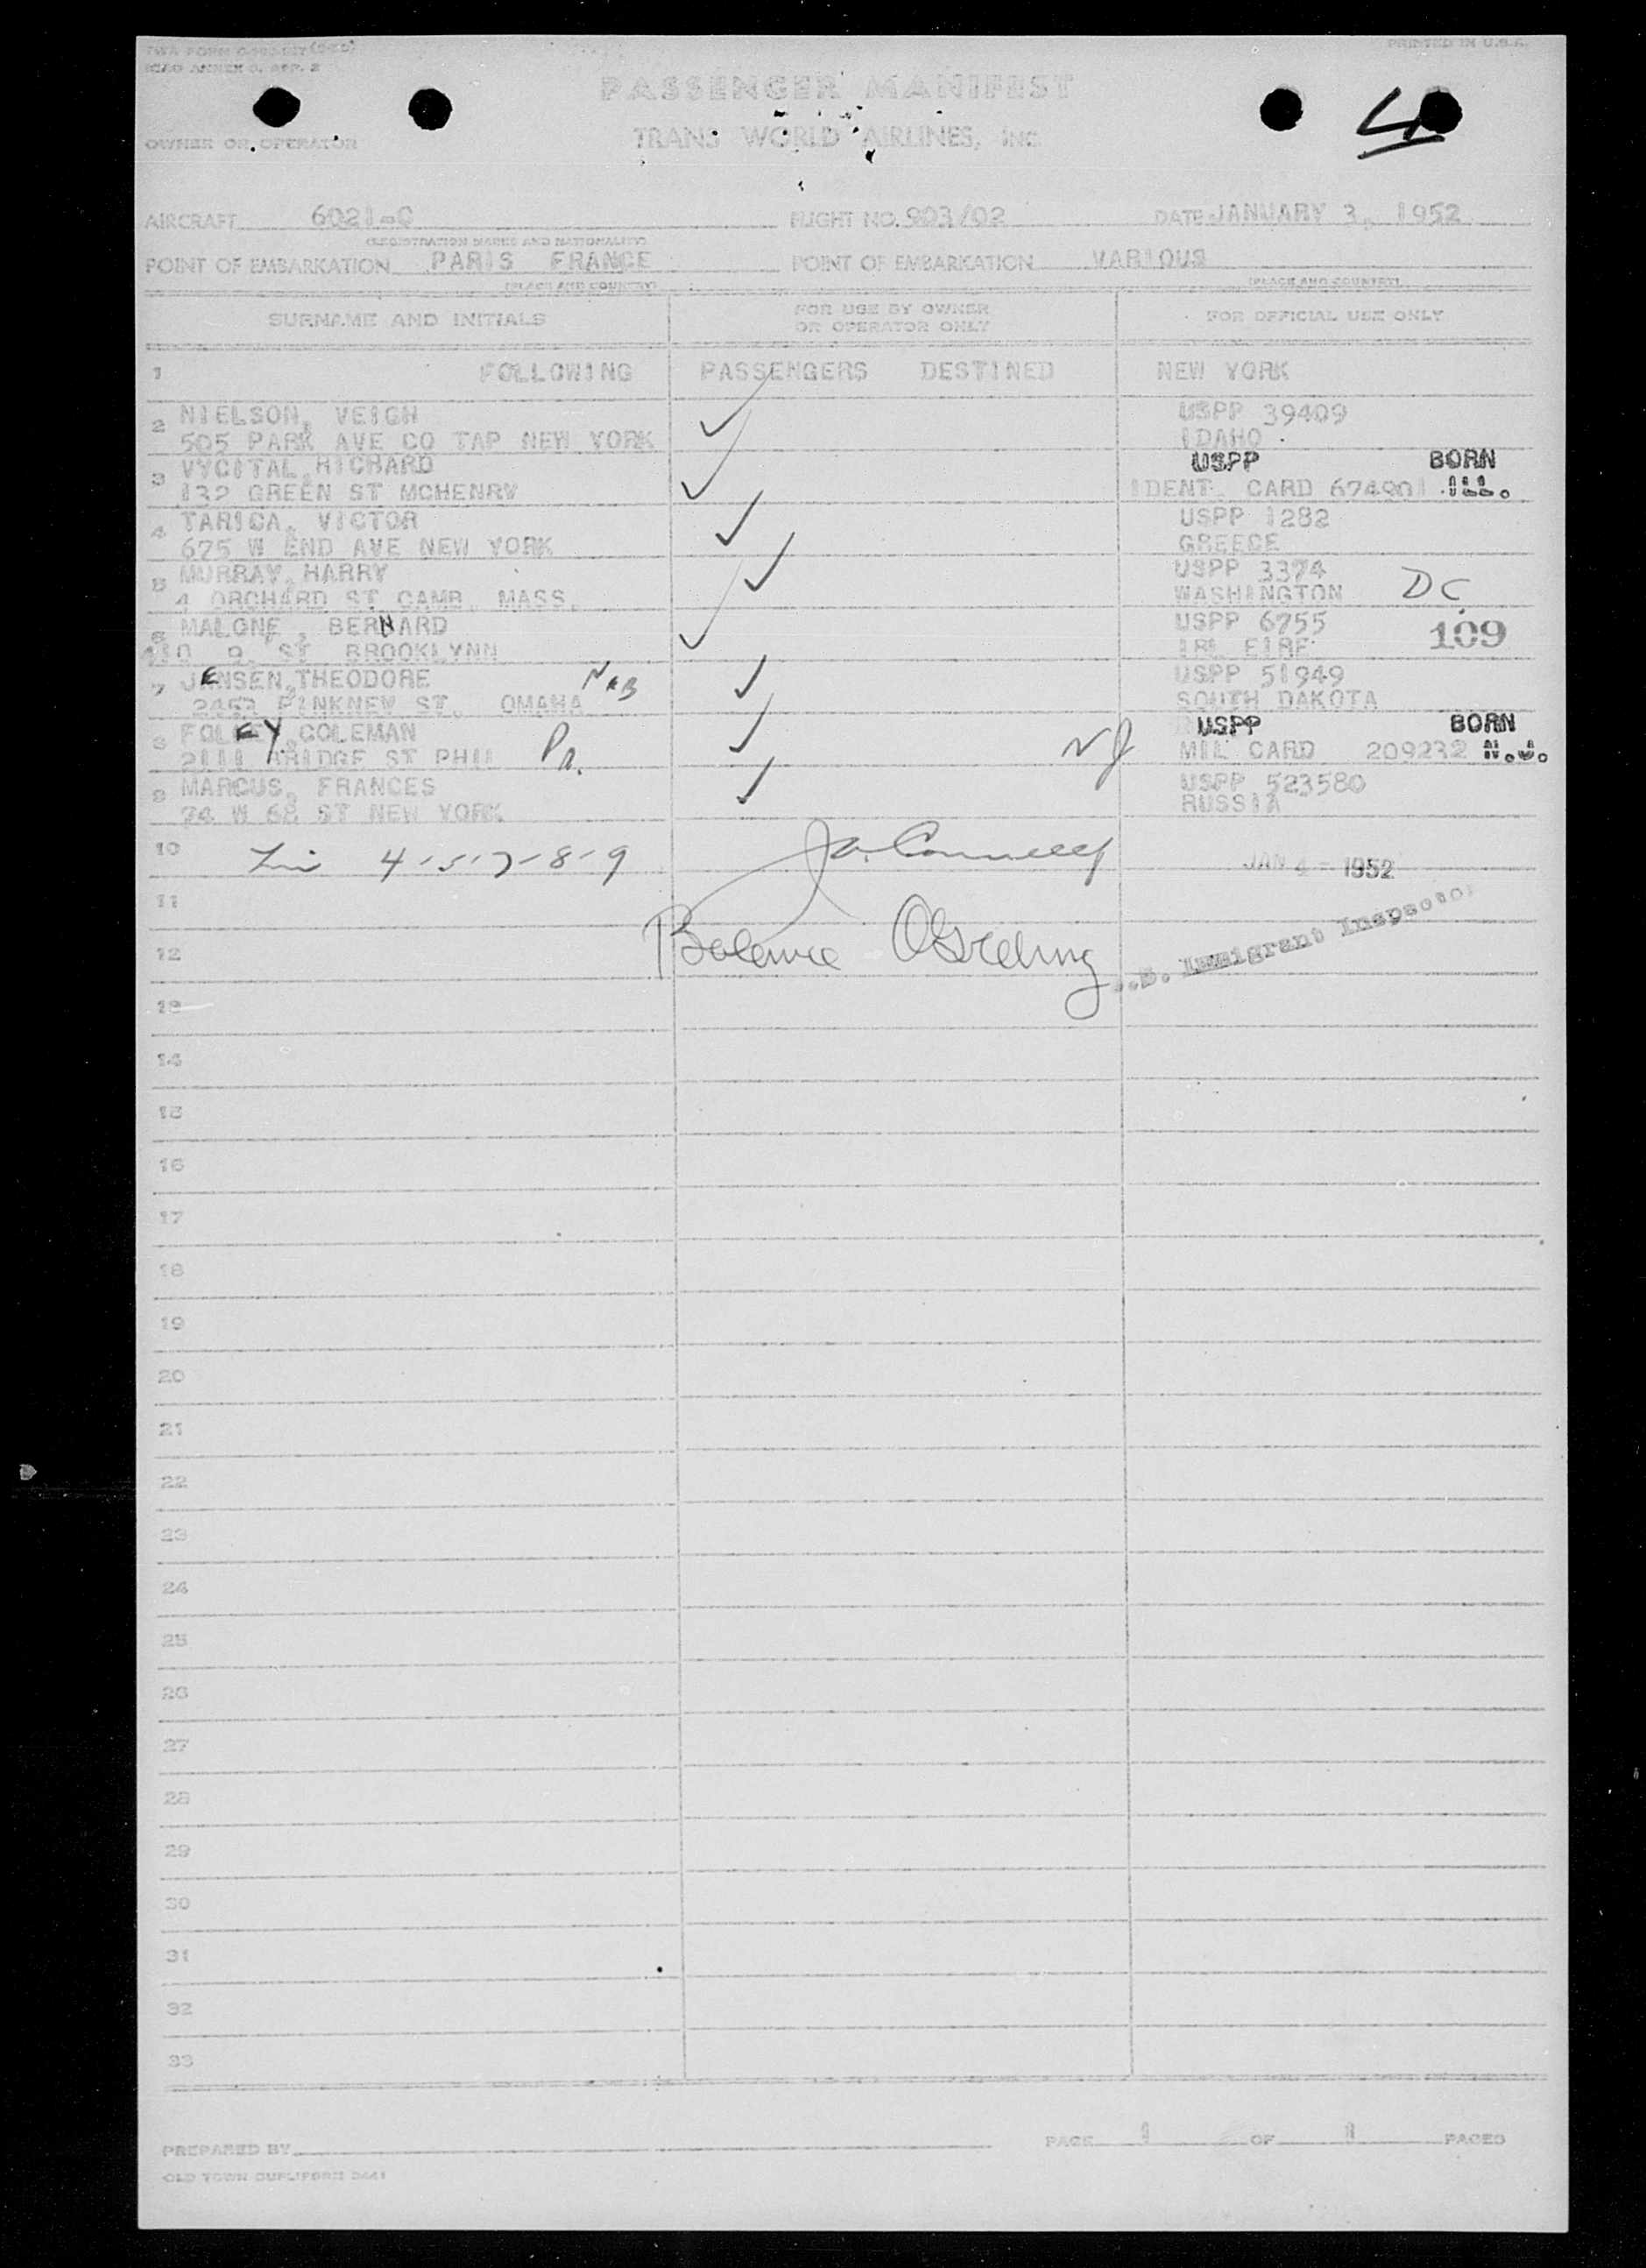 ICAO ANNEX 9, APP. 2
PRINTED IN U.S.A.
PASSENGER MANIFEST
4
OWNER OR OPERATOR
TRANS WORLD AIRLINES, INC.
AIRCRAFT 6021-C FLIGHT NO. 903/02 DATE JANUARY 3, 1952
(REGISTRATION MARKS AND NATIONALITY)
POINT OF EMBARKATION PARIS FRANCE POINT OF EMBARKATION VARIOUS
(PLACE AND COUNTRY) (PLACE AND COUNTRY)
SURNAME AND INITIALS FOR USE BY OWNER OR OPERATOR ONLY FOR OFFICIAL USE ONLY
1 FOLLOWING PASSENGERS DESTINED NEW YORK
2 NIELSON, VEIGH ✓ USPP 39409
505 PARK AVE CO TAP NEW YORK IDAHO
3 VYCITAL, RICHARD ✓ USPP BORN
132 GREEN ST MCHENRY IDENT. CARD 674901 ILL.
4 TARICA, VICTOR ✓ USPP 1282
675 W END AVE NEW YORK GREECE
5 MURRAY, HARRY ✓ USPP 3374
4 ORCHARD ST CAMB. MASS. WASHINGTON DC
6 MALONE, BERNARD ✓ USPP 6755
9 ST BROOKLYNN EIRE 109
7 JENSEN, THEODORE Neb ✓ USPP 51949
PINKNEY ST. OMAHA SOUTH DAKOTA
8 FOLEY, COLEMAN ✓ USPP BORN
2111 BRIDGE ST PHIL Pa. NJ MIL CARD 209232 N.J.
9 MARCUS, FRANCES ✓ USPP 523580
74 W 68 ST NEW YORK RUSSIA
10 4-5-7-8-9 JAN 4 - 1952
11
12 Balance Immigrant Inspector
13
14
15
16
17
18
19
20
21
22
23
24
25
26
27
28
29
30
31
32
33
PREPARED BY PAGE 1 OF 1 PAGES